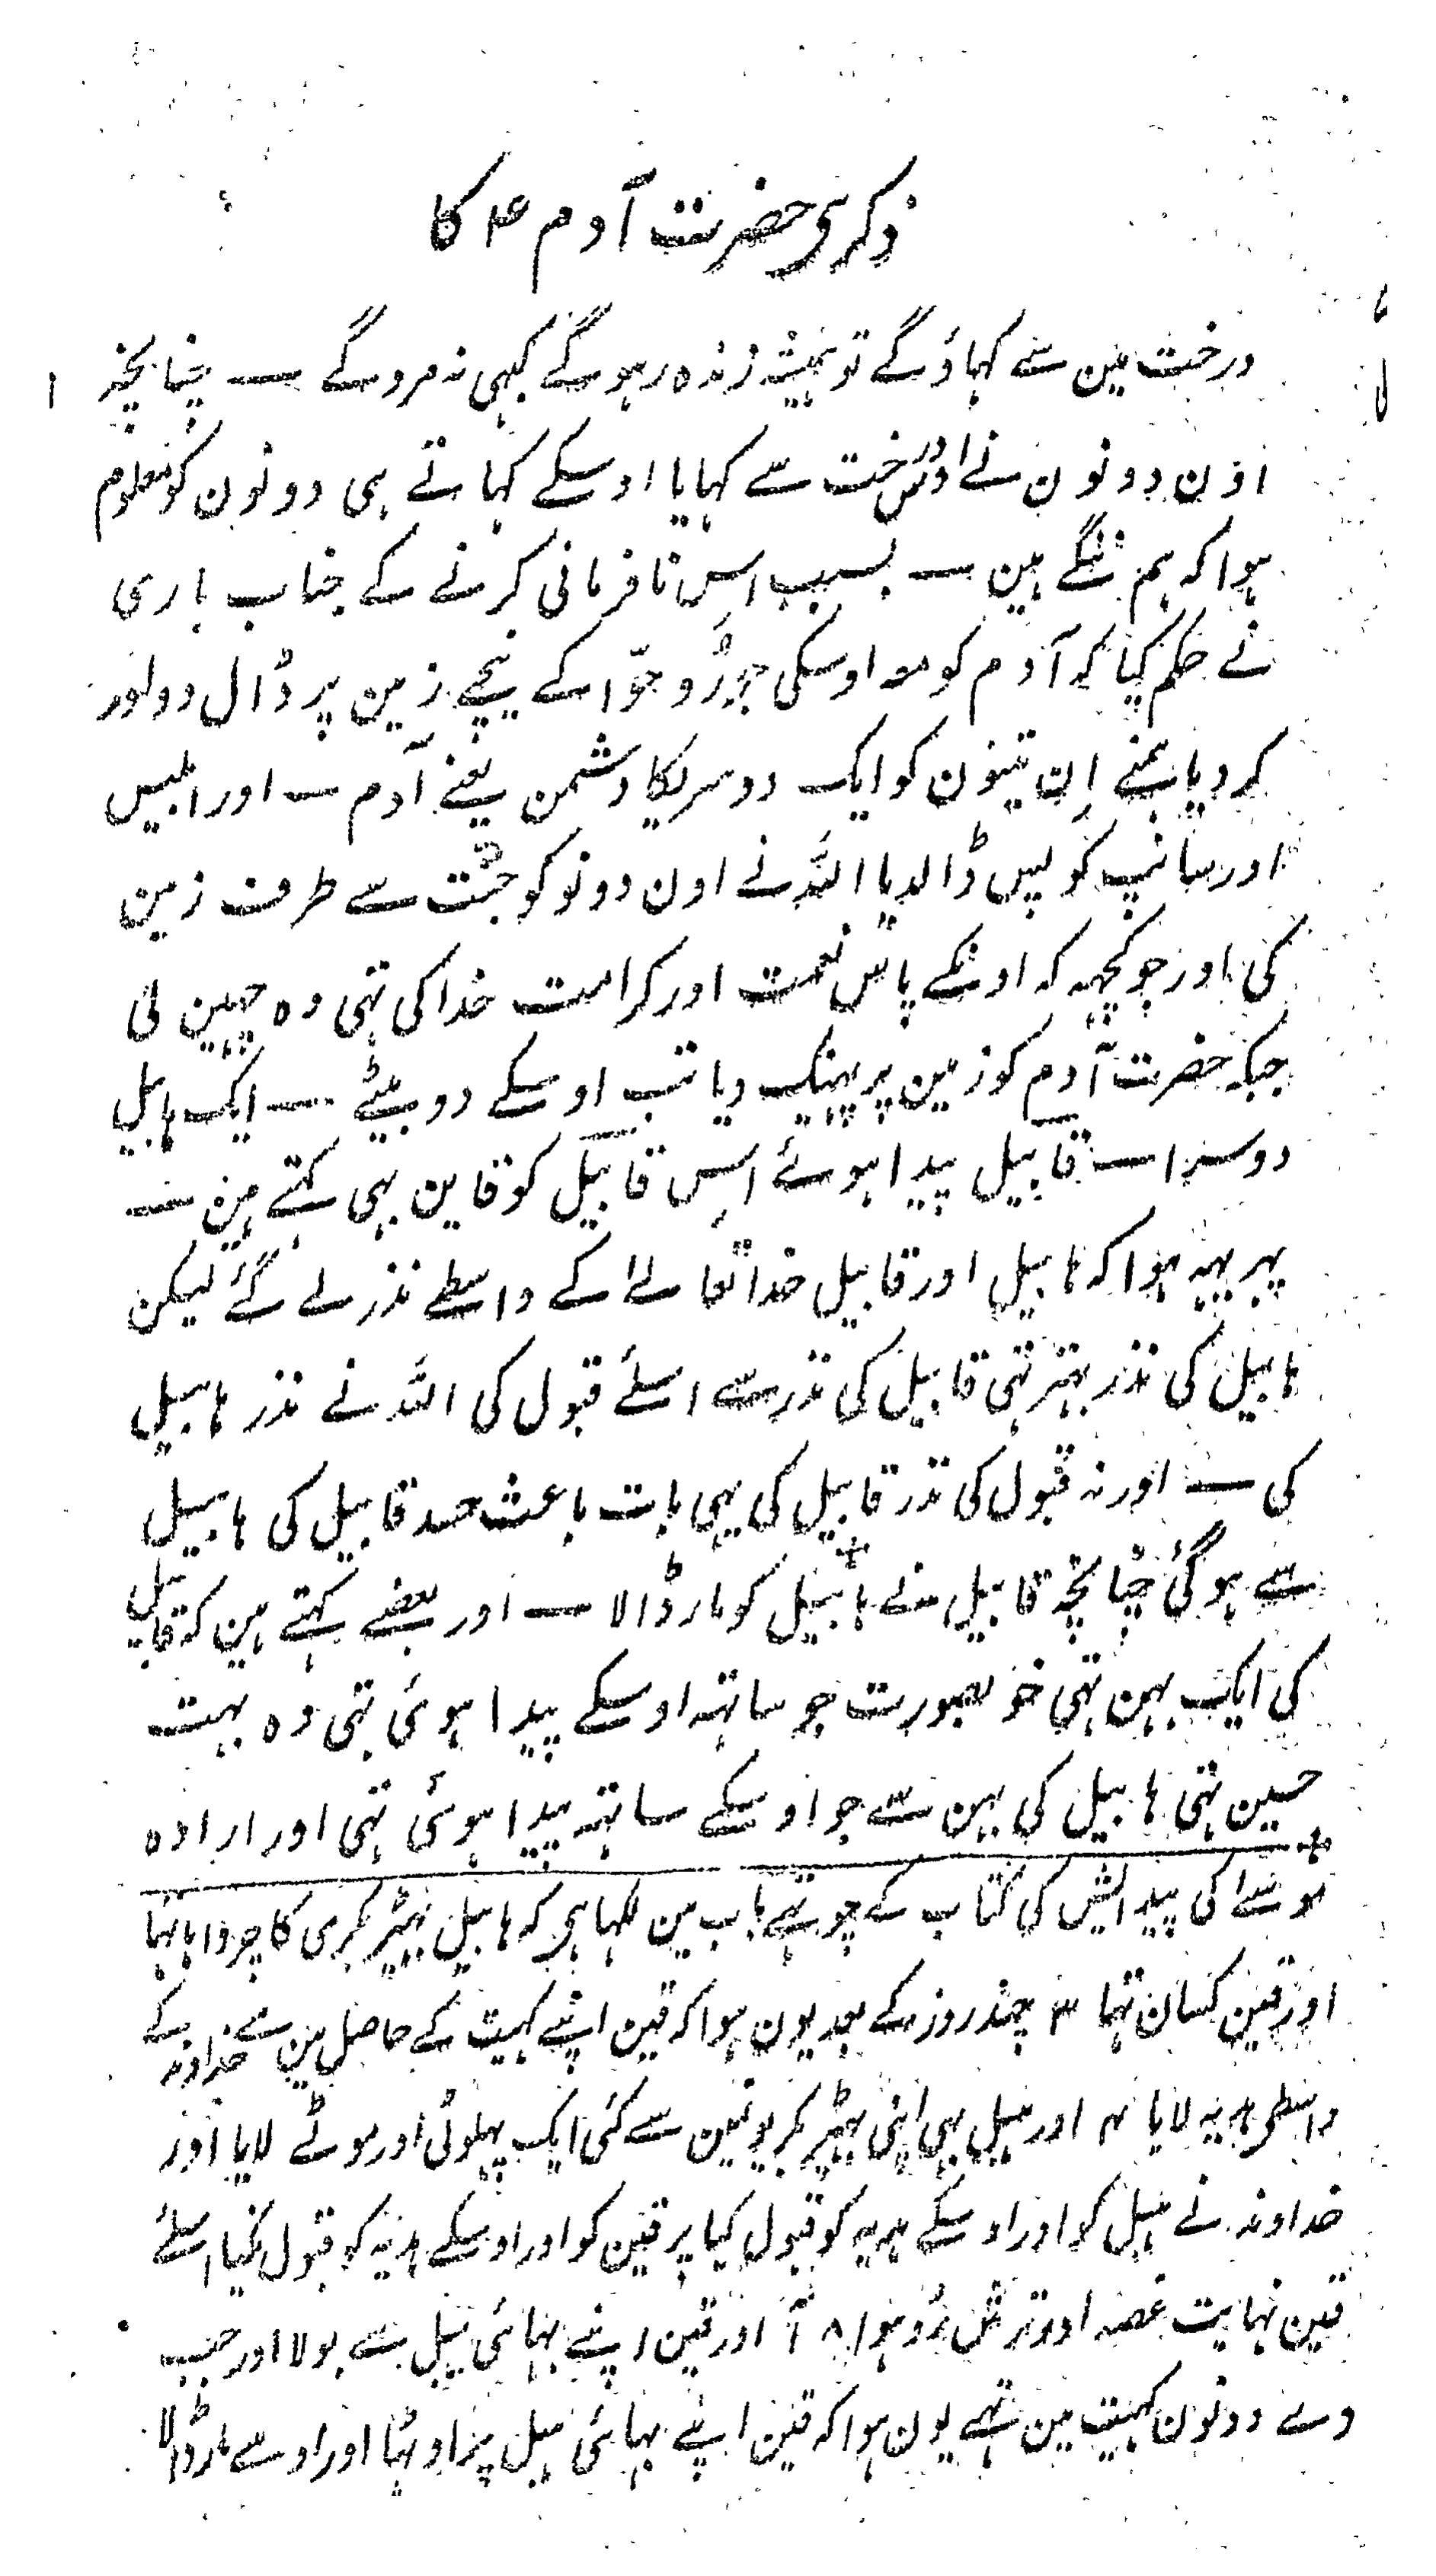 ذکر ہی حضرت آدم ۴ کا
درخت مین سے کہاؤ گے تو ہمیشہ زندہ رہو گے کبہی نہ مرو گے — چنانچہ
اون دونون نے اوس درخت سے کہایا اوسکے کہاتے ہی دونون کو معلوم
ہوا کہ ہم ننگے ہین — بسبب اس نافرمانی کرنے کے جناب باری
نے حکم کیا کہ آدم کو مع اوسکی جورُو حوّا کے نیچے زمین پر ڈال دو اور
کر دیا ہمنے اِن تینون کو ایک دوسریکا دشمن یعنے آدم — اور ابلیس
اور سانپ کو پس ڈالدیا اللہ نے اون دونو کو جنّت سے طرف زمین
کی اور جو کچہہ کہ اونکے پاس نعمت اور کرامت خدا کی تہی وہ چہین لی
جبکہ حضرت آدم کو زمین پر پہینک دیا تب اوسکے دو بیٹے — ایک ہابیل
دوسرا — قابیل پیدا ہوئے اسِ قابیل کو قاین بہی کہتے ہین —
پہر یہہ ہوا کہ ہابیل اور قابیل خدا تعالےٰ کے واسطے نذر لے گئے لیکن
ہابیل کی نذر بہتر تہی قابیل کی نذر سے اسلئے قبول کی اللہ نے نذر ہابیل
کی — اور نہ قبول کی نذر قابیل کی یہی بات باعث حسد قابیل کی ہابیل
سے ہو گئی چنانچہ قابیل نے ہابیل + کو مار ڈالا — اور بعضے کہتے ہین کہ قابیل
کی ایک بہن تہی خوبصورت جو ساتہہ اوسکے پیدا ہوئی تہی وہ بہت
حسین تہی ہابیل کی بہن سے جو اوسکے ساتہہ پیدا ہوئی تہی اور ارادہ
+ موسےٰ کی پیدایش کی کتاب کے چوتہے باب مین لکہا ہی کہ ہابیل بہیڑ بکری کا چرواہا تہا
اور قین کسان تہا ۳ چند روز کے بعد یون ہوا کہ قین اپنے کہیت کے حاصل مین سے خداوند کے
واسطی ہدیہ لایا ۴ اور ہبیل بہی اپنی بہیڑ بکریونمین سے کئی ایک پہلوٹی اور موٹے لایا اور
خداوند نے ہبیل کو اور اوسکے ہدیہ کو قبول کیا پر قین کو اور اوسکے ہدیہ کو قبول نکیا اسلئے
قین نہایت غصہ اور ترش رُو ہوا ۸ اور قین اپنے بہائی ہبیل سے بولا اور جب
وے دونون کہیت مین تہے یون ہوا کہ قین اپنے بہائی ہبیل پر اوٹہا اور اوسے مار ڈالا